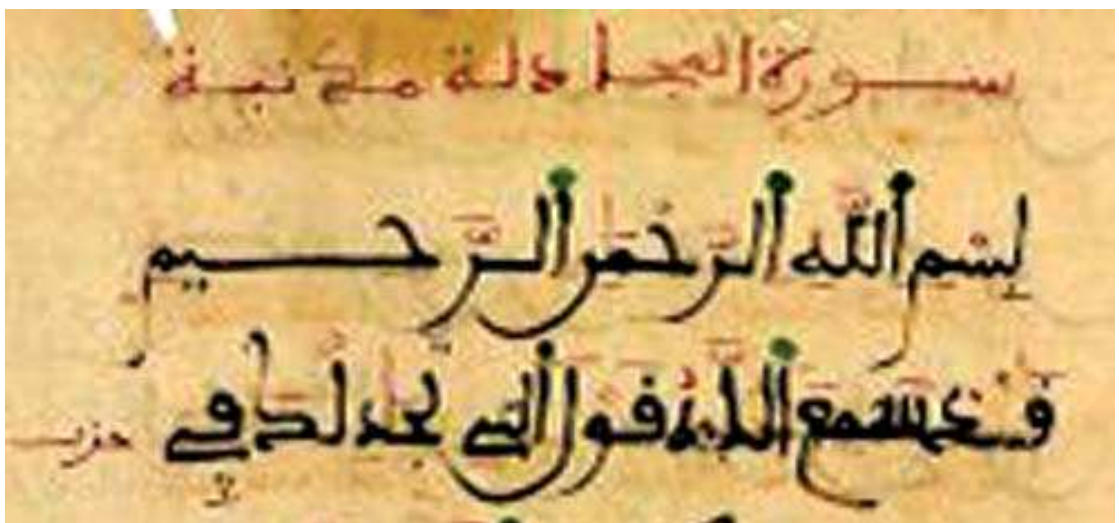 سورة المجادلة مدنية
بِسْمِ اللَّهِ الرَّحْمَٰنِ الرَّحِيمِ
قَدْ سَمِعَ اللَّهُ قَوْلَ الَّتِي تُجَادِلُكَ فِي
حزب